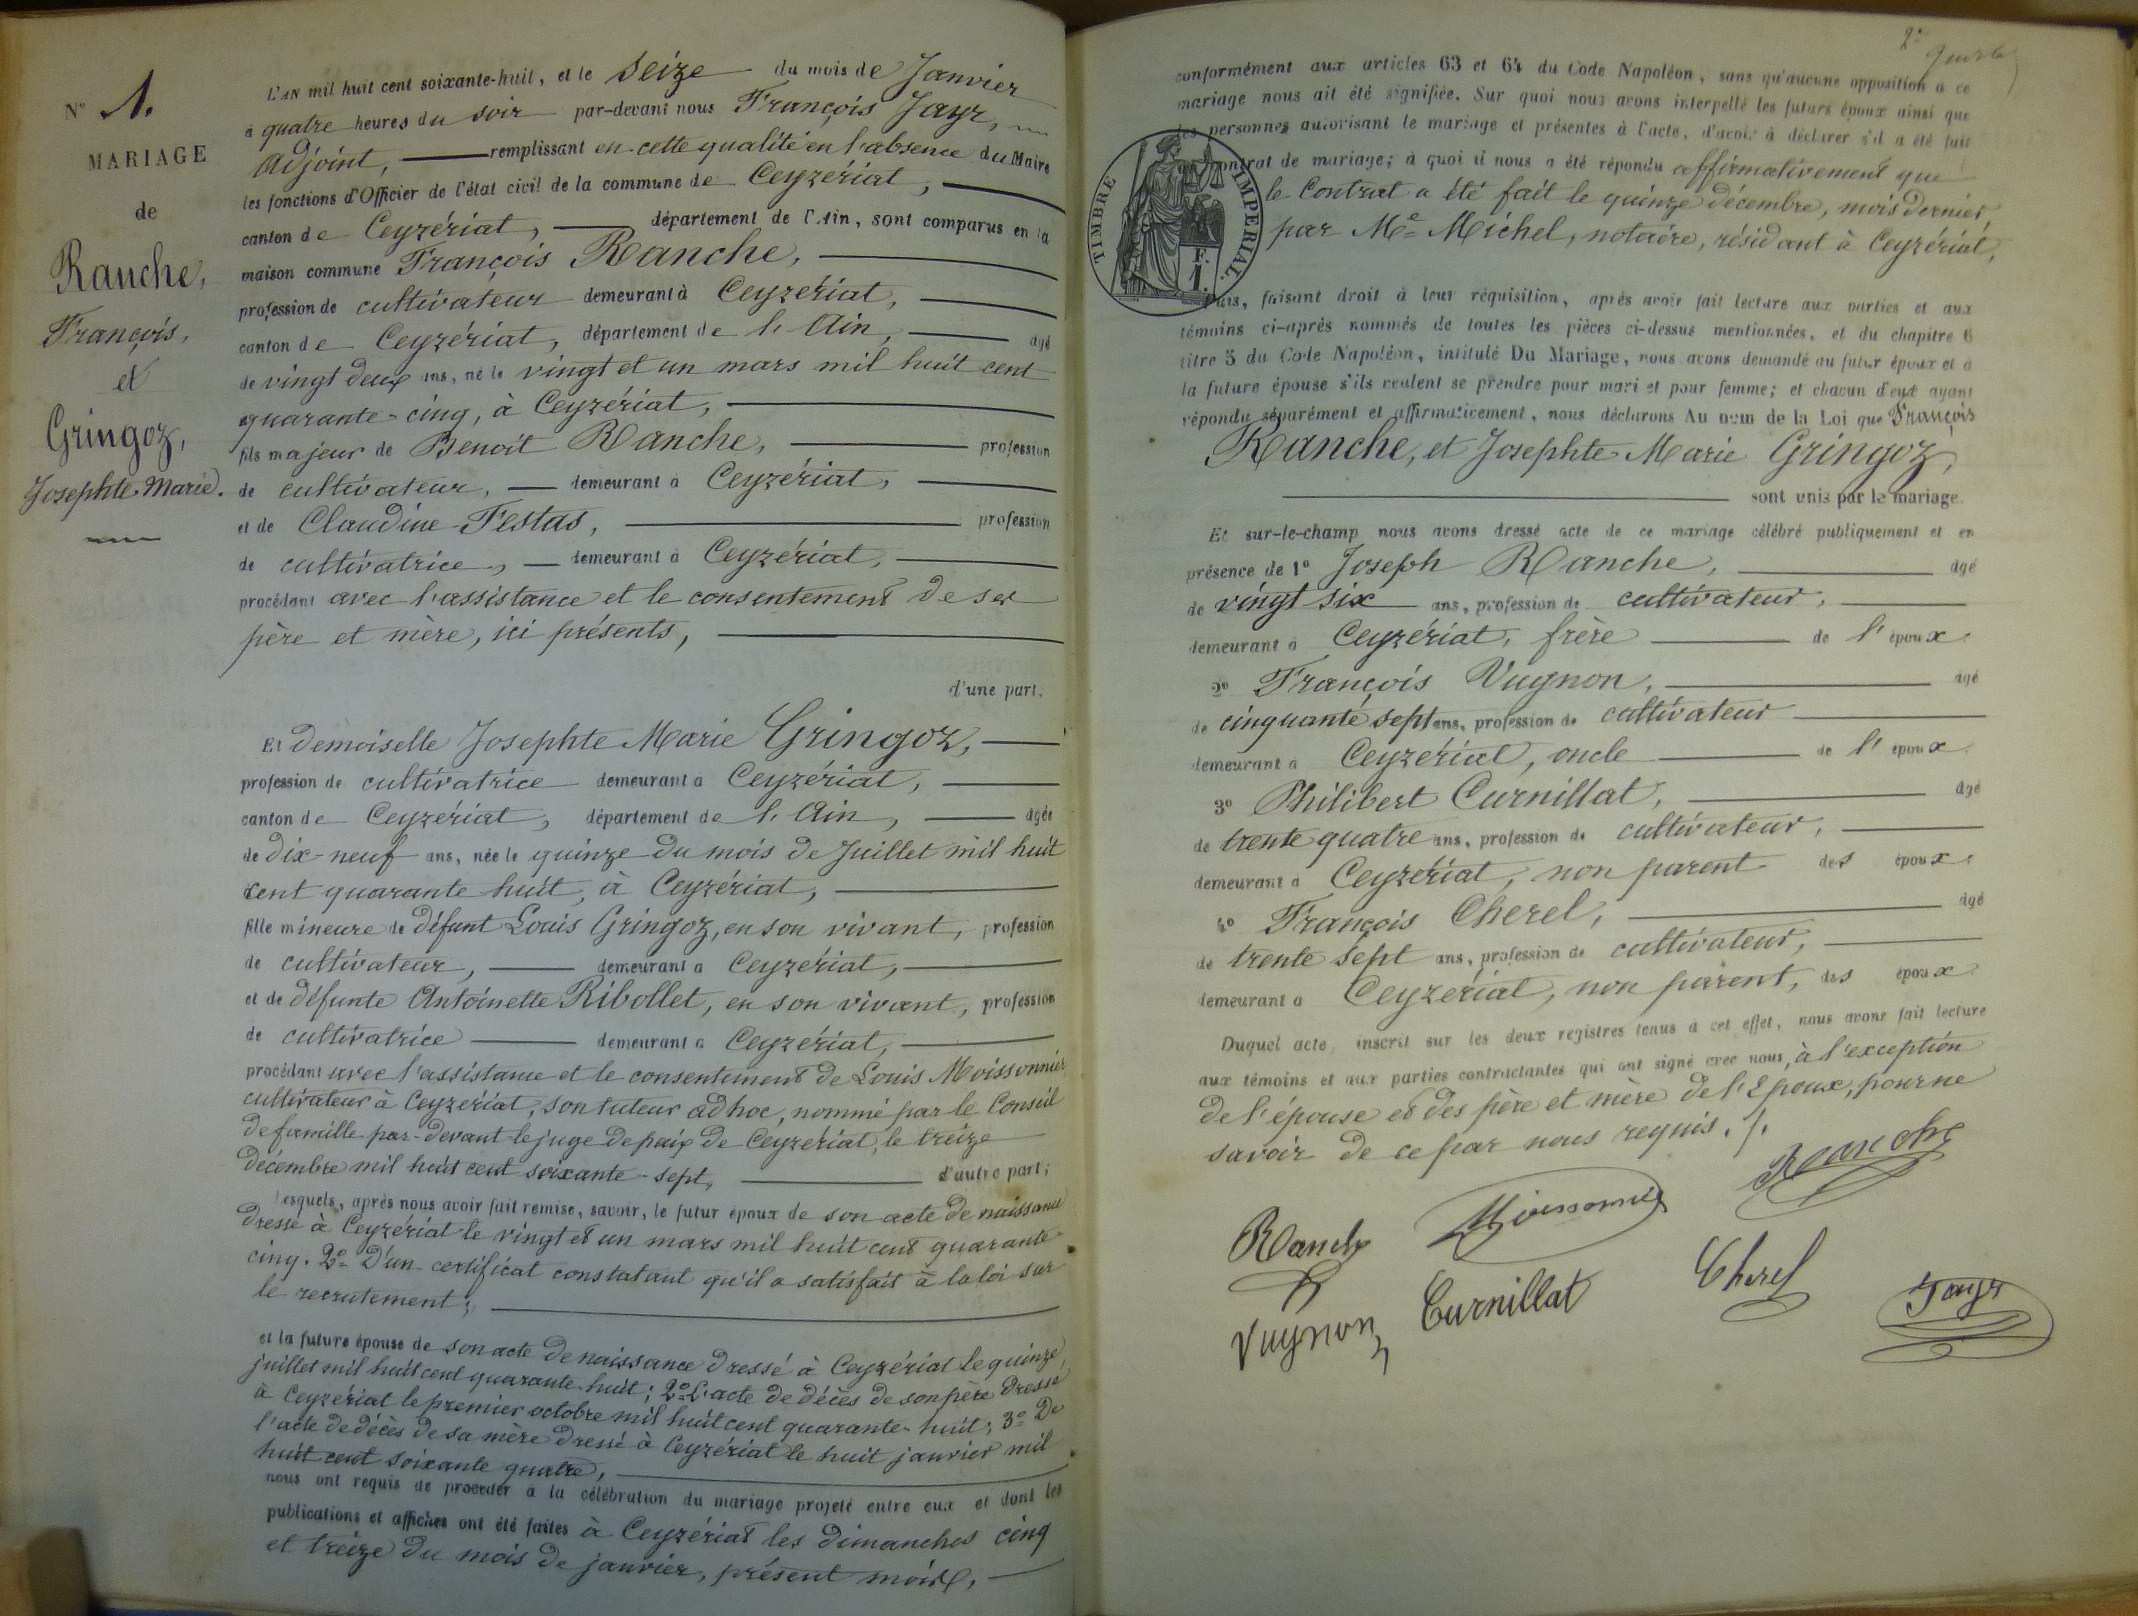 N° 1.
MARIAGE
de
Ranche,
François,
et
Gringoz,
Josephte Marie.
L'AN mil huit cent soixante-huit, et le seize du mois de Janvier
à quatre heures du soir par-devant nous François Jayr,
adjoint, remplissant en cette qualité en l'absence du Maire
les fonctions d'Officier de l'état civil de la commune de Ceyzériat,
canton de Ceyzériat, département de l'Ain, sont comparus en la
maison commune François Ranche,
profession de cultivateur demeurant à Ceyzériat,
canton de Ceyzériat, département de l'Ain, âgé
de vingt deux ans, né le vingt et un mars mil huit cent
quarante-cinq, à Ceyzériat,
fils majeur de Benoit Ranche, profession
de cultivateur, demeurant à Ceyzériat,
et de Claudine Festas, profession
de cultivatrice, demeurant à Ceyzériat,
procédant avec l'assistance et le consentement de ses
père et mère, ici présents,
d'une part.
Et demoiselle Josephte Marie Gringoz,
profession de cultivatrice demeurant à Ceyzériat,
canton de Ceyzériat, département de l'Ain, âgée
de dix-neuf ans, née le quinze du mois de Juillet mil huit
cent quarante huit, à Ceyzériat,
fille mineure de défunt Louis Gringoz, en son vivant, profession
de cultivateur, demeurant à Ceyzériat,
et de défunte Antoinette Ribollet, en son vivant, profession
de cultivatrice demeurant à Ceyzériat,
procédant avec l'assistance et le consentement de Louis Moissonnier
cultivateur à Ceyzériat, son tuteur ad hoc, nommé par le Conseil
de famille par-devant le juge de paix de Ceyzériat, le treize
décembre mil huit cent soixante-sept, d'autre part;
Lesquels, après nous avoir fait remise, savoir, le futur époux de son acte de naissance
dressé à Ceyzériat le vingt et un mars mil huit cent quarante
cinq. 2° D'un certificat constatant qu'il a satisfait à la loi sur
le recrutement;
et la future épouse de son acte de naissance dressé à Ceyzériat le quinze
juillet mil huit cent quarante-huit; 2° L'acte de décès de son père dressé
à Ceyzériat le premier octobre mil huit cent quarante-huit; 3° De
l'acte de décès de sa mère dressé à Ceyzériat le huit janvier mil
huit cent soixante quatre,
nous ont requis de procéder à la célébration du mariage projeté entre eux et dont les
publications et affiches ont été faites à Ceyzériat les dimanches cinq
et treize du mois de janvier, présent mois,
2e
conformément aux articles 63 et 64 du Code Napoléon, sans qu'aucune opposition à ce
mariage nous ait été signifiée. Sur quoi nous avons interpellé les futurs époux ainsi que
les personnes autorisant le mariage et présentes à l'acte, d'avoir à déclarer s'il a été fait
contrat de mariage; à quoi il nous a été répondu affirmativement que
le Contrat a été fait le quinze décembre, mois dernier,
par Me Michel, notaire, résidant à Ceyzériat,
TIMBRE IMPERIAL.
1 F.
Puis, faisant droit à leur réquisition, après avoir fait lecture aux parties et aux
témoins ci-après nommés de toutes les pièces ci-dessus mentionnées, et du chapitre 6
titre 5 du Code Napoléon, intitulé Du Mariage, nous avons demandé au futur époux et à
la future épouse s'ils veulent se prendre pour mari et pour femme; et chacun d'eux ayant
répondu séparément et affirmativement, nous déclarons Au nom de la Loi que François
Ranche, et Josephte Marie Gringoz,
sont unis par le mariage.
Et sur-le-champ nous avons dressé acte de ce mariage célébré publiquement et en
présence de 1° Joseph Ranche, âgé
de vingt six ans, profession de cultivateur,
demeurant à Ceyzériat, frère de l'époux.
2° François Vugnon, âgé
de cinquante sept ans, profession de cultivateur
demeurant à Ceyzériat, oncle de l'époux.
3° Philibert Curnillat, âgé
de trente quatre ans, profession de cultivateur,
demeurant à Ceyzériat, non parent des époux.
4° François Cherel, âgé
de trente sept ans, profession de cultivateur,
demeurant à Ceyzériat, non parent, des époux
Duquel acte, inscrit sur les deux registres tenus à cet effet, nous avons fait lecture
aux témoins et aux parties contractantes qui ont signé avec nous, à l'exception
de l'épouse et des père et mère de l'Epoux, pour ne
savoir de ce par nous requis. /.
Ranche
Ranche
Moissonnier
Vugnon
Curnillat
Cherel
Jayr